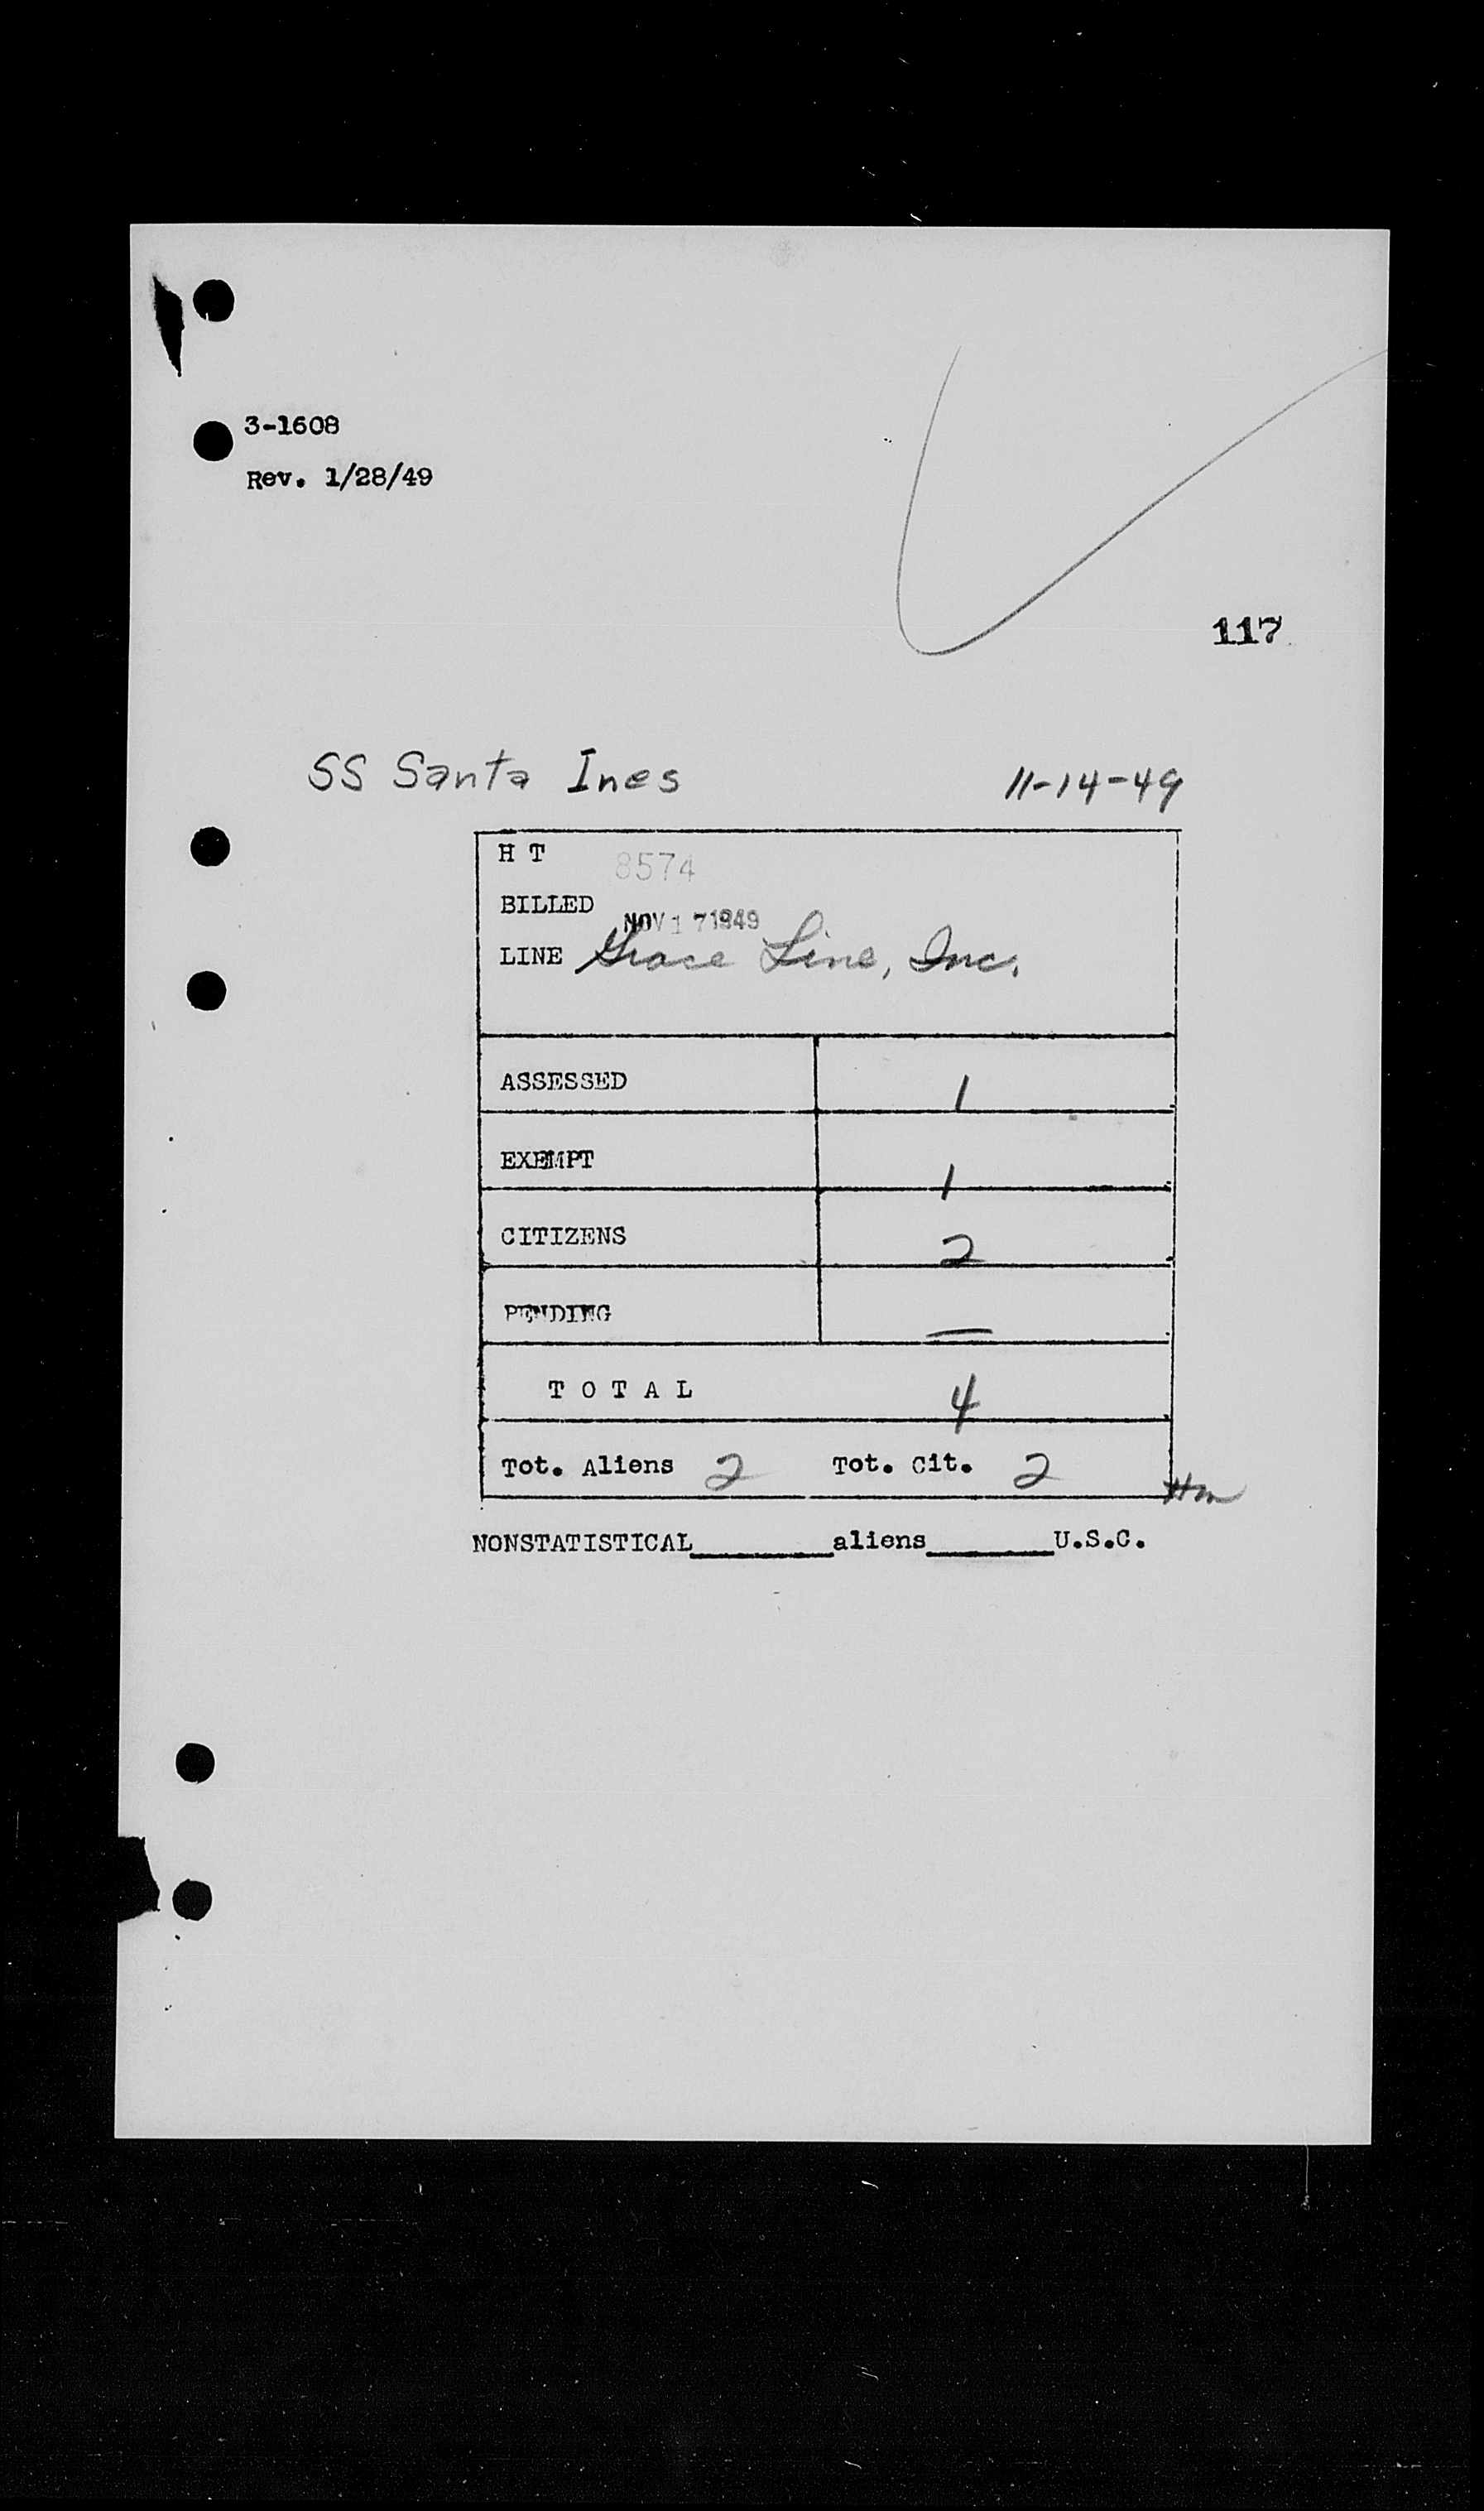 3-1608
Rev. 1/28/49
117
SS Santa Ines 11-14-49
H T 8574
BILLED NOV 17 1949
LINE Grace Line, Inc.
ASSESSED 1
EXEMPT 1
CITIZENS 2
PENDING —
T O T A L 4
Tot. Aliens 2 Tot. Cit. 2
Hm
NONSTATISTICAL________aliens_______U.S.C.